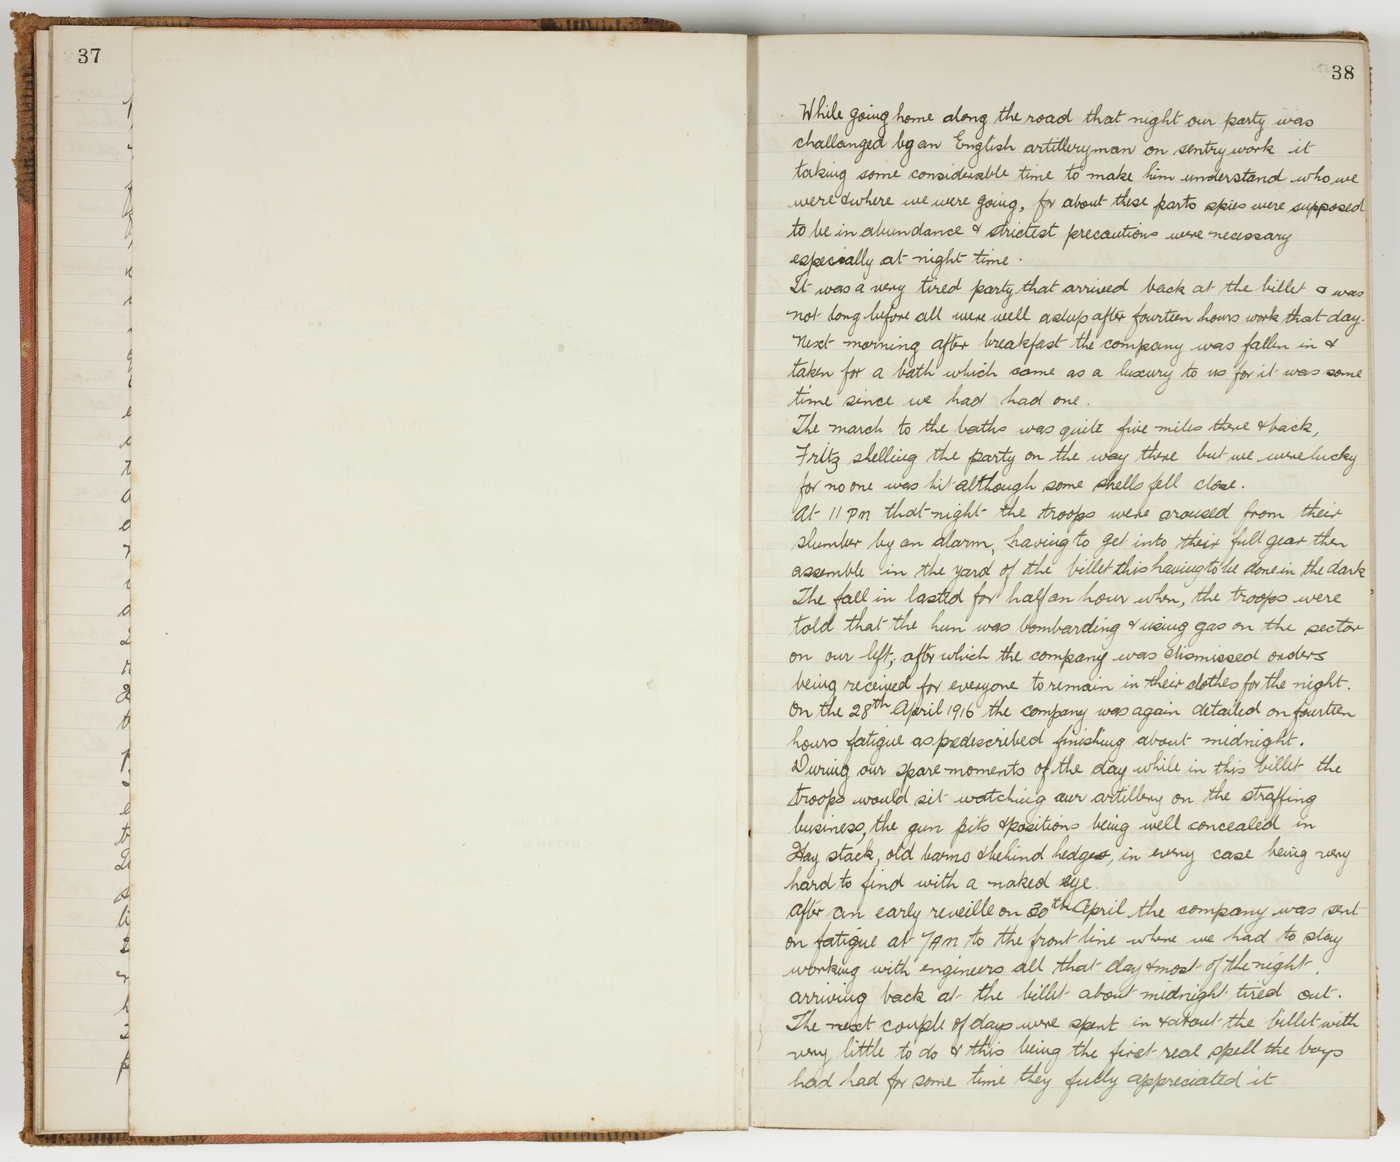 37
38
While going home along the road that night our party was
challanged by an English artilleryman on sentry work it
taking some considerable time to make him understand who we
were & where we were going, for about these parts spies were supposed
to be in abundance & strictest precautions were necessary
especially at night time.
It was a very tired party that arrived back at the billet & was
not long before all were well asleep after fourteen hours work that day.
Next morning after breakfast the company was fallen in &
taken for a bath which came as a luxury to us for it was some
time since we had had one.
The march to the baths was quite five miles there & back,
Fritz shelling the party on the way there but we were lucky
for no one was hit although some shells fell close.
At 11 PM that night the troops were aroused from their
slumber by an alarm, having to get into their full gear then
assemble in the yard of the billet this having to be done in the dark
The fall in lasted for half an hour when, the troops were
told that the hun was bombarding & using gas on the sector
on our left, after which the company was dismissed orders
being received for everyone to remain in their clothes for the night.
On the 28th April 1916 the company was again detailed on fourteen
hours fatigue as prediscribed finishing about midnight.
During our spare moments of the day while in this billet the
troops would sit watching our artillery on the straffing
business, the gun pits & positions being well concealed in
Hay stack, old barns & behind hedges, in every case being very
hard to find with a naked eye.
After an early reveille on 30th April the company was sent
on fatigue at 7AM to the front line where we had to stay
working with engineers all that day & most of the night,
arriving back at the billet about midnight tired out.
The next couple of days were spent in & about the billet with
very little to do & this being the first real spell the boys
had had for some time they fully appreciated it